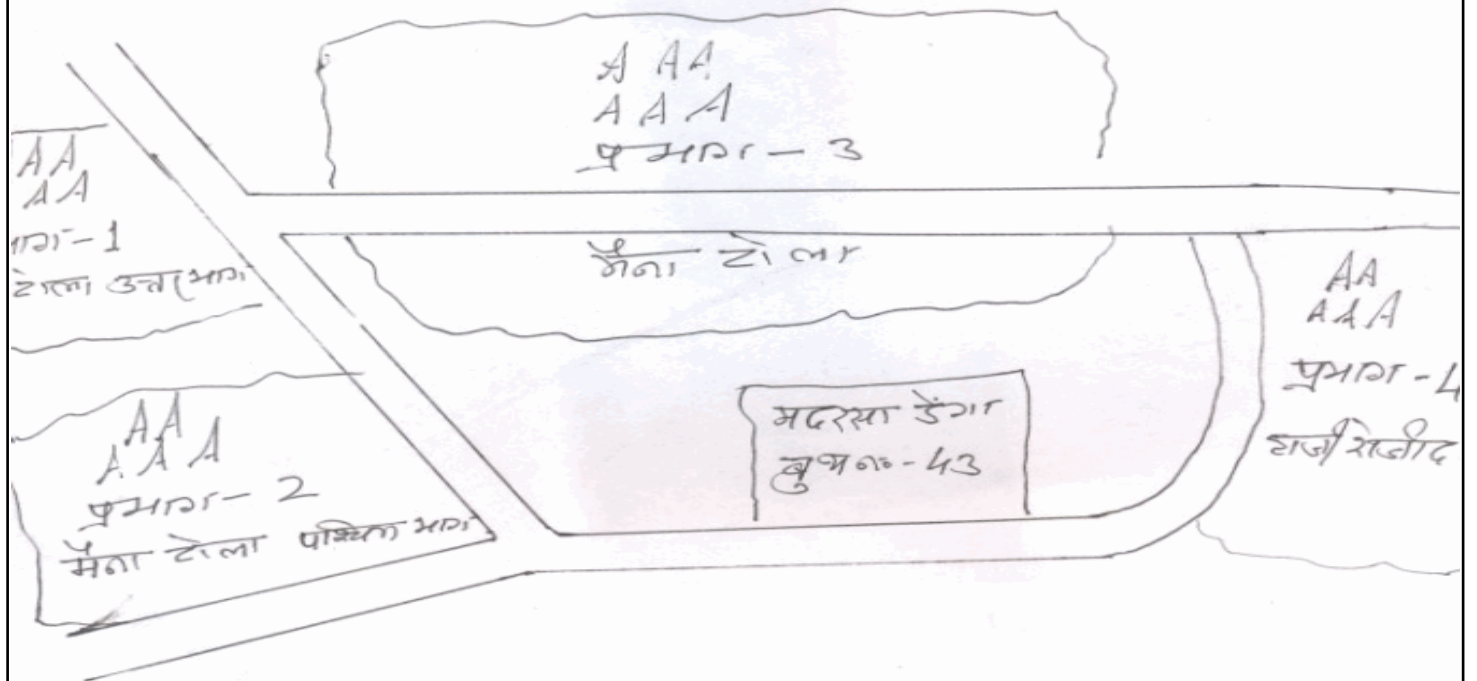 A AA
A A A
प्रभाग - 3
AA
AA
भाग - 1
टोला उत्तर भाग
मैना टोला
AA
A A A
प्रभाग - 4
हाजी
AA
A A A
प्रभाग - 2
मैना टोला पश्चिम भाग
मदरसा डेंगा
बुथ नं - 43